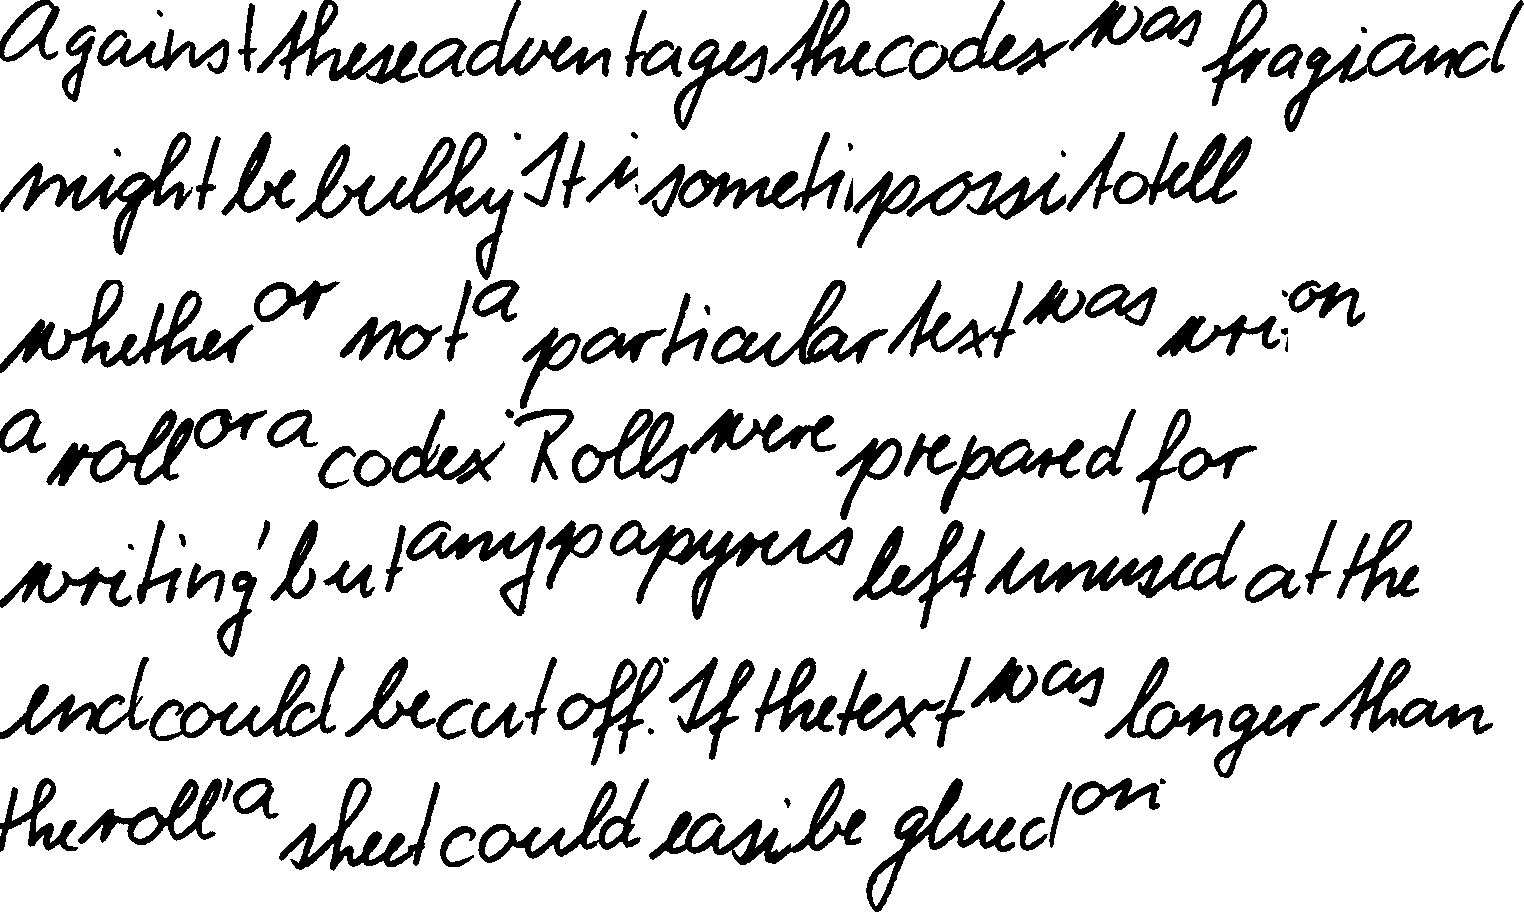 Against these advantages the codex was fragi and
might be bulky. It is someti possi to tell
whether or not a particular text was wri on
a roll or a codex. Rolls were prepared for
writing, but any papyrus left unused at the
end could be cut off. If the text was longer than
the roll, a sheet could easi be glued on.